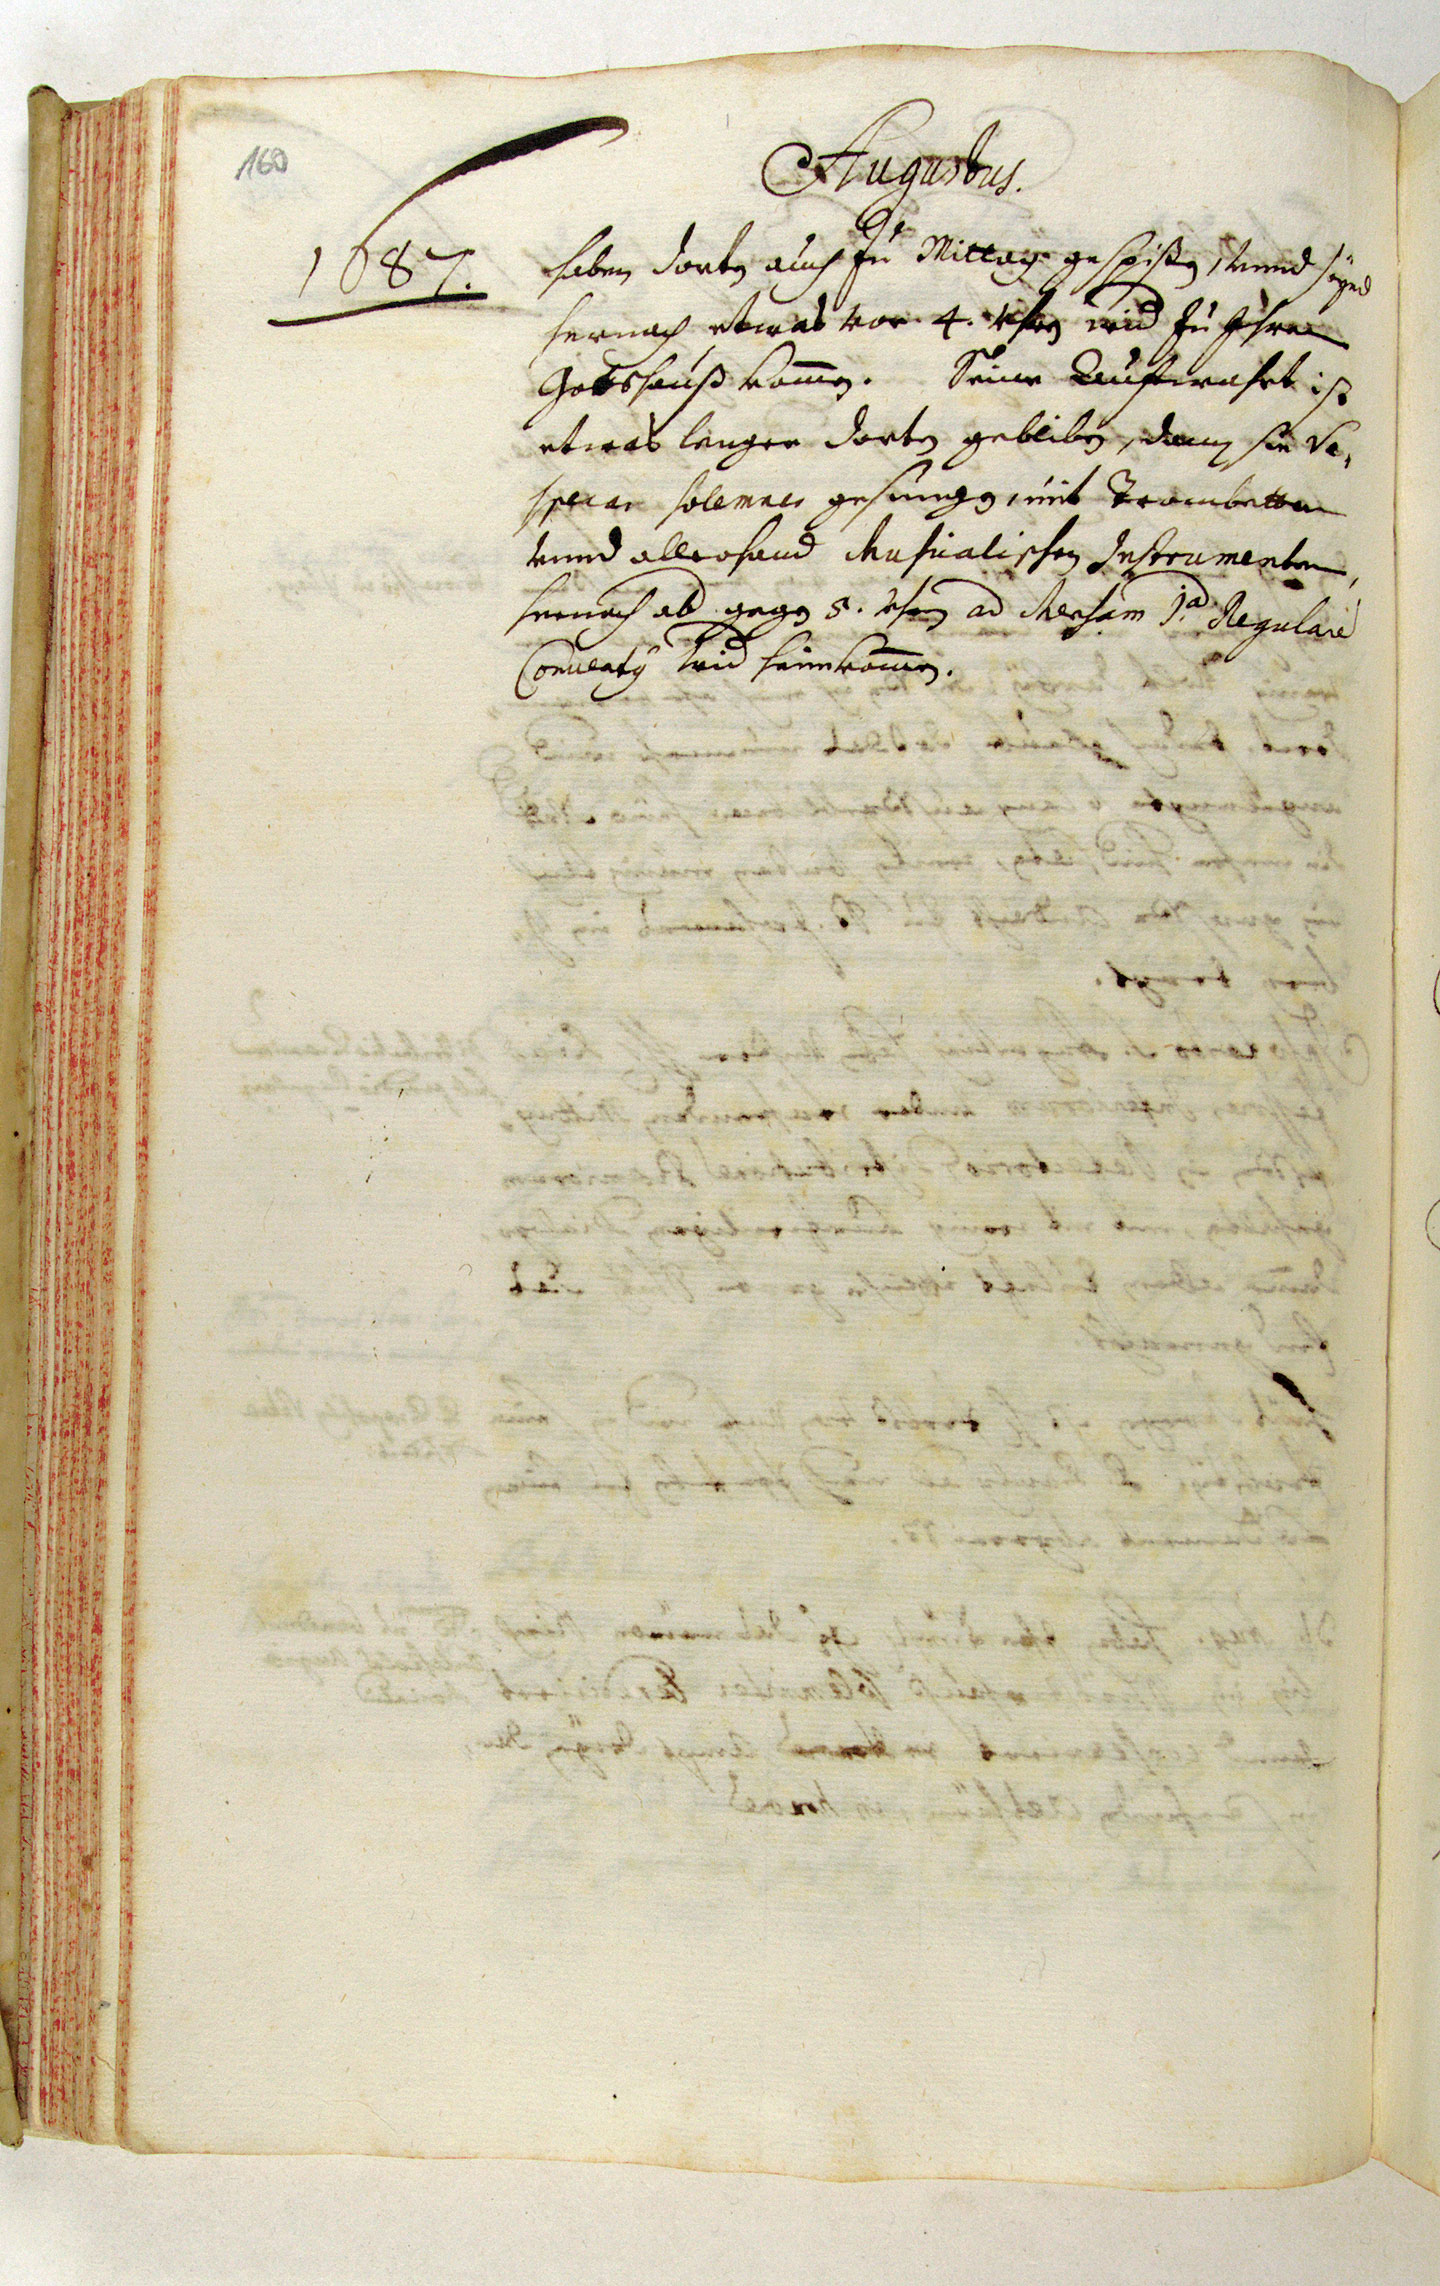 160
Augustus.
1687.
haben dorten auch zu Mittag gespisen, vnnd seynd
hernach etwas vor 4. Vhren wid zu Ihrem
Gottshauß kommen. Seine Saufterwehrt ist
etwas langer dorten gebliben, dann sie Ve,
speras solemnes gesungen, mit Trombetten
vnnd allerhand Musicalischen Instrumenten,
hernach ab gegen 5. Vhren ad Mensam 1.ᵃᵈ Regularē
Conventus wid heimkommen.